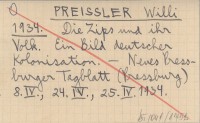 PREISSLER Willi
1934. Die Zips und ihr
Volk. Ein Bild deutscher
Kolonisation. – Neues Press-
burger Tagblatt (Pressburg)
8. IV., 24. IV., 25. IV. 1934.